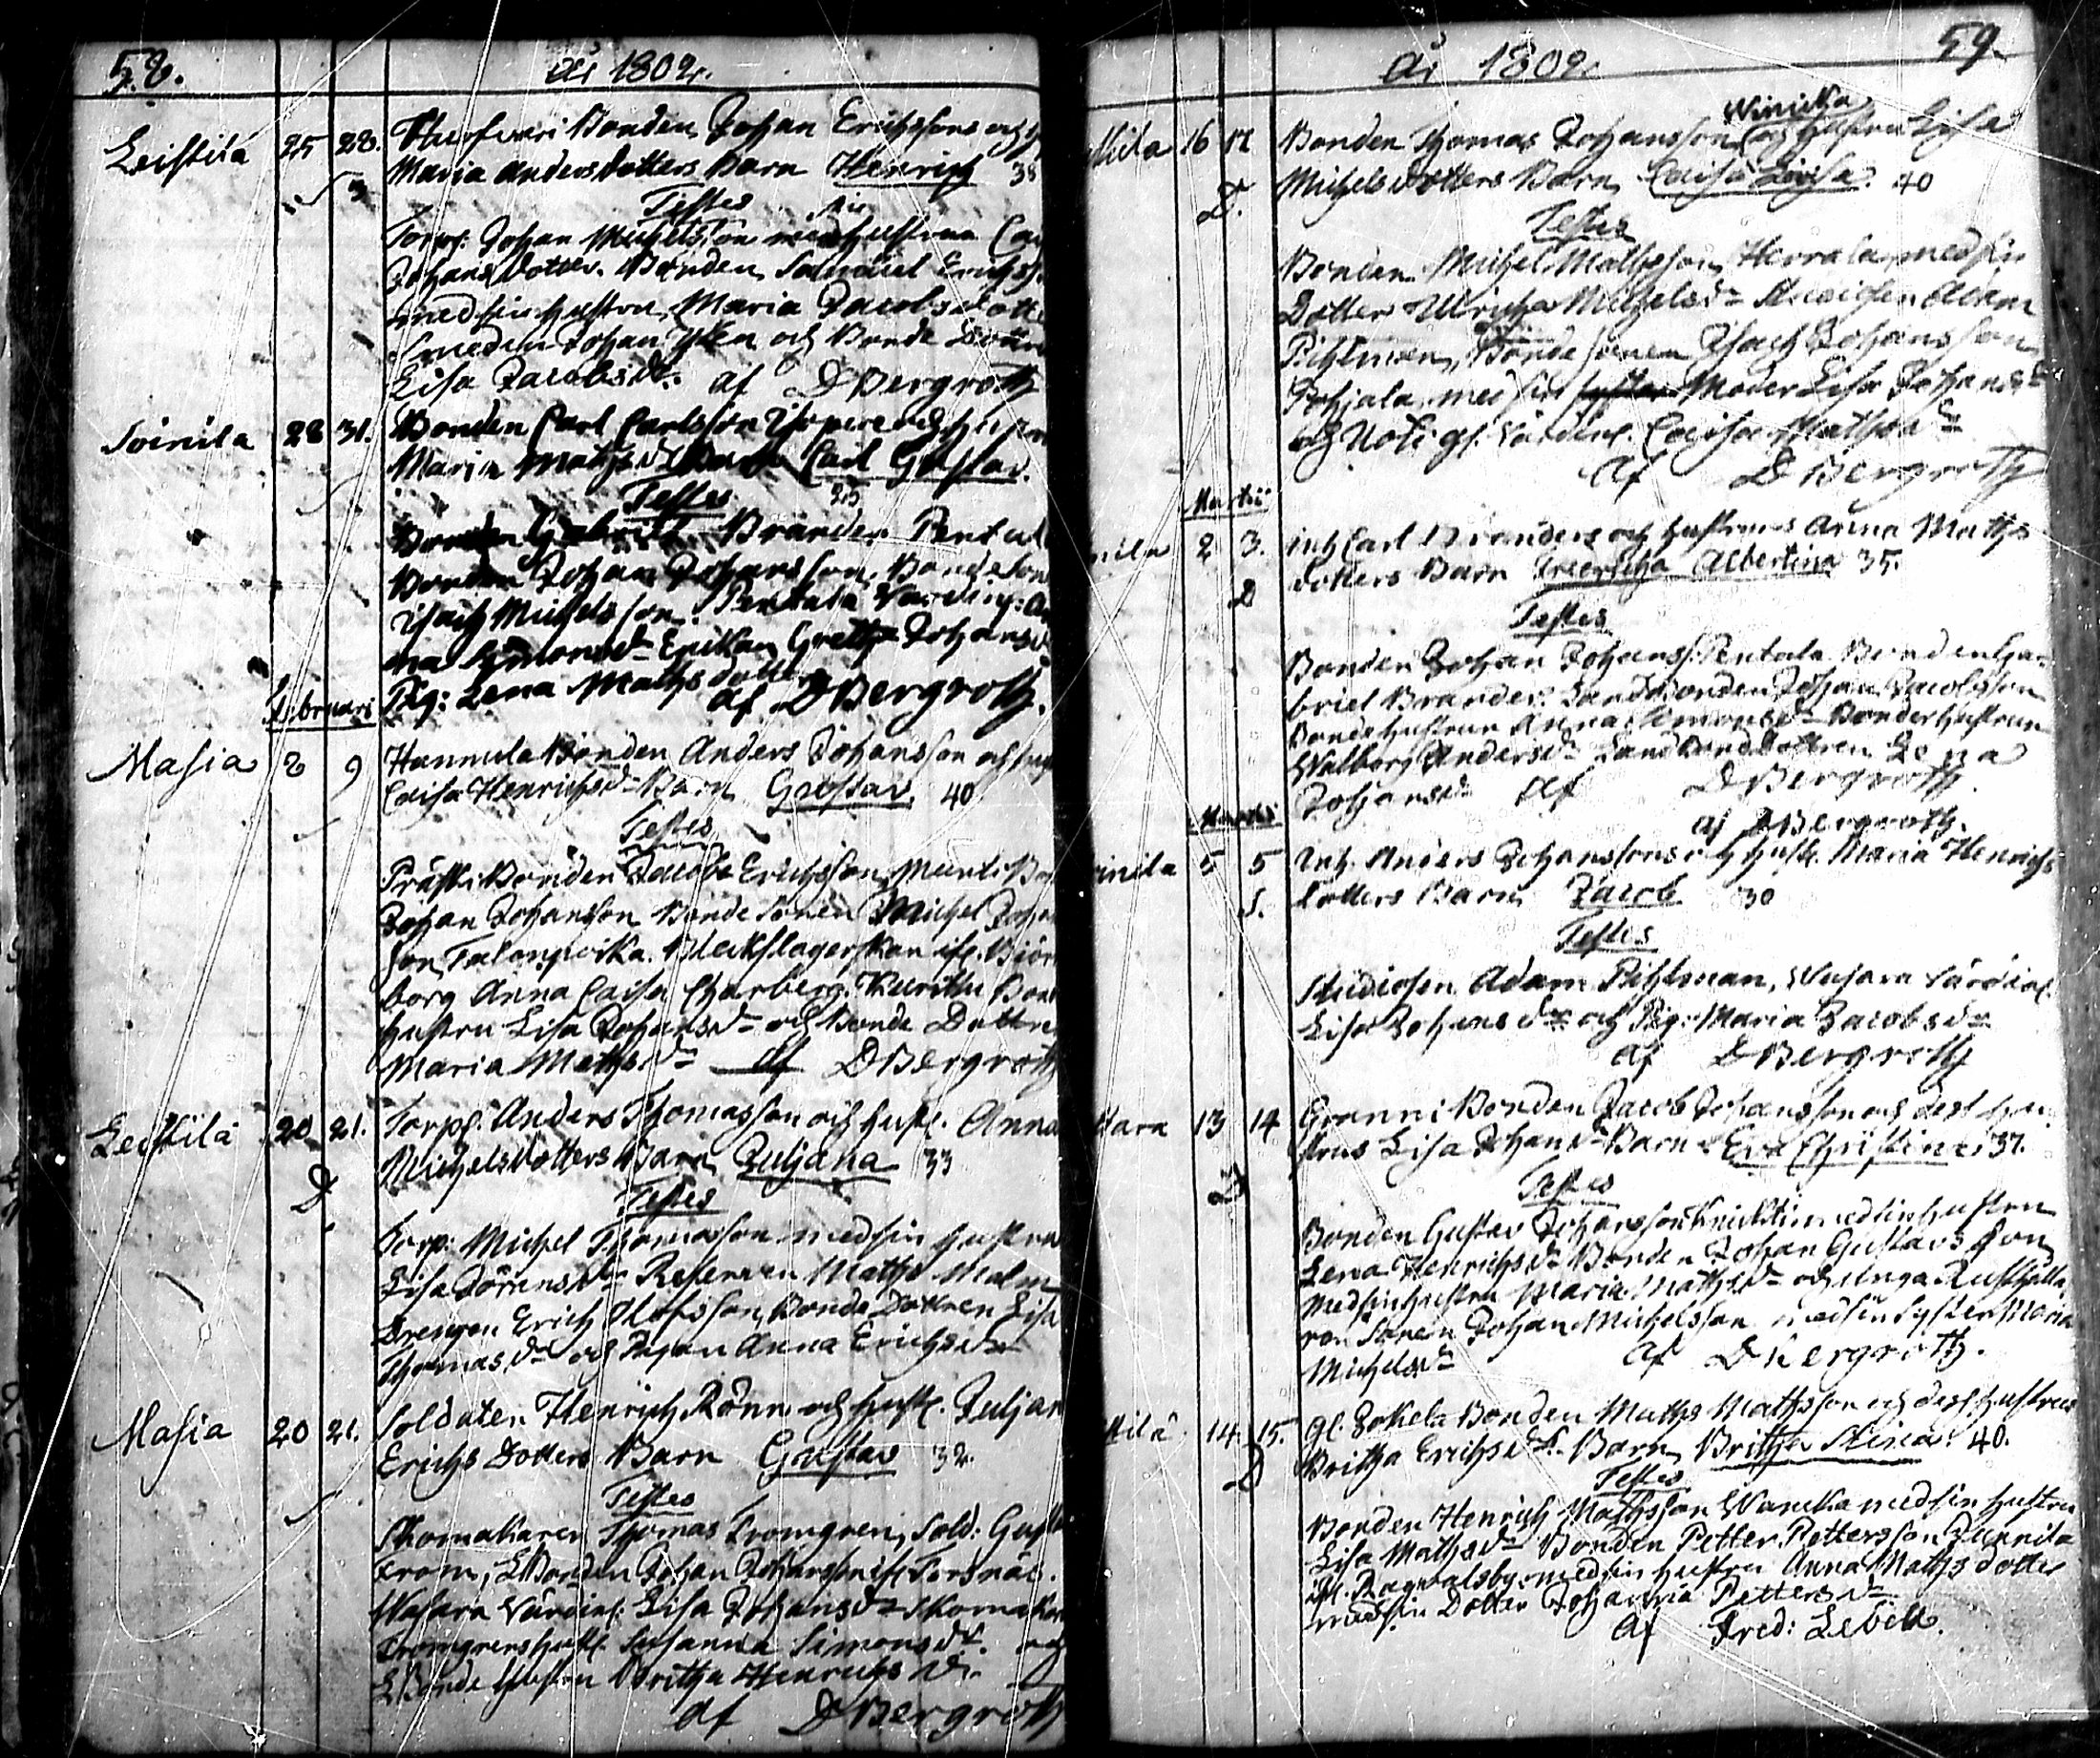 58.
år 1802.
Leistila 25 28. Bonden Johan Erichssons och
3 Maria Andersdotters Barn Henrich 38
Testes
Torp: Johan Michelsson med sin hustru
Johansdotter. Bonden Samuel Erichss
med sin hustru Maria Jacobsdotte
Smeden Johan och Bonde
Lisa Jacobsdr. af DBergroth
Soinila 28 31. Bonden Carl Carlsson och hustru
Maria Mathsdr Barn Carl Gustav.
Testes 25
Bonden Gabriel Brander Pentala
Bonden Johan Johansson, Bondeson
Isach Michelsson Pentala Värding: An
na Simonsdr Enkan Greta Johansdr
Pig: Lena Mathsdotter
af DBergroth.
Februari
Masia 8 9 Hannula Bonden Anders Johansson och hust
Caisa Henrichsdr Barn Gustav. 40
Testes
Prästi Bonden Jacob Erichsson, Bo
Johan Johansson Bonde Sonen Michel Johan
son Talonpoika. Bleckslagerskan if. Biörn
borg Anna Caisa Bond
hustru Lisa Johansdr och Bonde Dottren
Maria Mathsdr af DBergroth
Leistila 20 21. Torp. Anders Thomasson och hust. Anna
D. Michelsdotters Barn Juljana 33
Testes
Torp: Michel Thomasson med sin hustru
Lisa Reserven Maths Malm
Drengen Erich Olofsson, Bonde Dottren Lisa
Thomasdr och Pigan Anna Erichsdr
Masia 20 21. Soldaten Henrich Rönn och hust. Juljan
Erichs Dotters Barn Gustav 32.
Testes
Skomakaren Thomas Fromgren, Sold: Gust
From, LBonden Johan Johansson if. Torsnäs.
Wasara Värdin: Lisa Johansdr Skomaka
Fromgrens hust. Susanna Simonsdr. och
LBonde hustru Britha Henrichsdr.
af DBergroth
59.
år 1802.
Ninicka
16 17 Bonden Thomas Johansson och hustru Lisa
D. Michelsdotters Barn Caisa Lovisa. 40
Testes
Bonden Michel Mathsson Herrala med sin
Dotter Ulricha Michelsdr Studiosen Adam
Pihlman, Bondesonen Isach Johansson
Pohjala med sin Moder Lisa Johansdr
och Noti gl. Värdin. Caisa Mathsdr
af DBergroth
Martii
2 3. Inh Carl Branders och hustrus Anna Maths
D dotters Barn Fredricha Albertina 35.
Testes
Bonden Johan Johanss. Pentala Bonden Ga
briel Brander. Landbonden Johan Jacobsson
Bonde hustrun Anna Simonsdr Bonde hustrun
Walborg Andersdr Landbondedottren Lena
Johansdr af DBergroth
Martii
af DBergroth.
5 5 Inh. Anders Johanssons och hust. Maria Henrichs
S. dotters Barn Jacob 30
Testes
Studiosen Adam Pihlman, Wasara Värdin.
Lisa Johansdr och Pig: Maria Jacobsdr
af DBergroth
13 14 Granni Bonden Jacob Johansson och dess hu
D strus Lisa Johansdr Barn Eva Christina 37.
Testes
Bonden Gustav Johansson Knichti med sin hustru
Lena Henrichsdr Bonden Johan Gustavsson
med sin hustru Maria Mathsdr och unga Rusthålla
ren Sonen Johan Michelsson med sin Syster Maria
Michelsdr af DBergroth.
14. 15. gl. Jokela Bonden Maths Mathsson och dess hustrus
D Britha Erichsdr. Barn Britha Stina. 40.
Testes
Bonden Henrich Mathsson Wanicka med sin hustru
Lisa Mathsdr Bonden Petter Pettersson Junnila
if. Ragvalsby med sin hustru Anna Maths dotter
med sin Dotter Johanna Pettersdr
af Fred: Lebell.